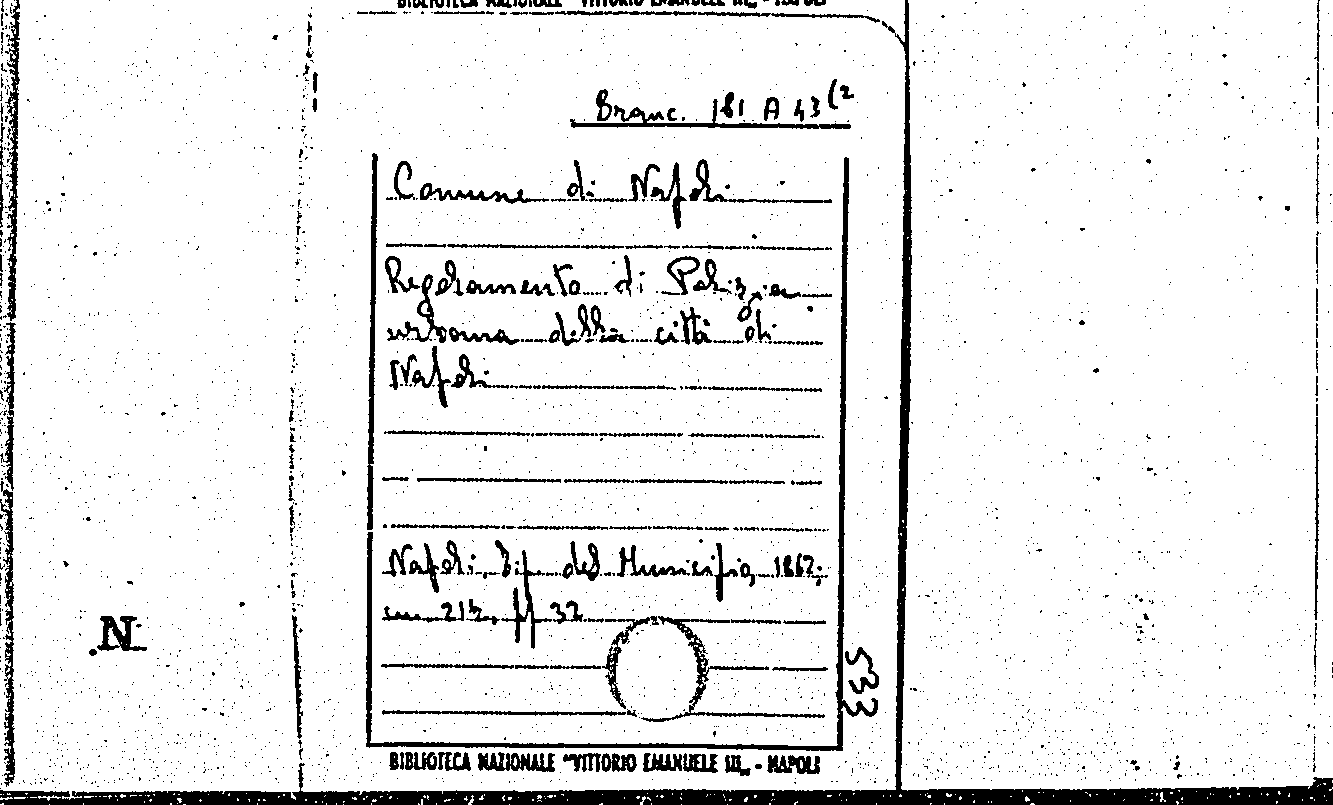 BIBLIOTECA NAZIONALE "VITTORIO EMANUELE III„ - NAPOLI
Branc. 181 A 43(2
Comune di Napoli
Regolamento di Polizia
urbana della città di
Napoli
Napoli, Tip. del Municipio, 1862;
cm. 21½, pp 32
533
N
BIBLIOTECA NAZIONALE "VITTORIO EMANUELE III„ - NAPOLI